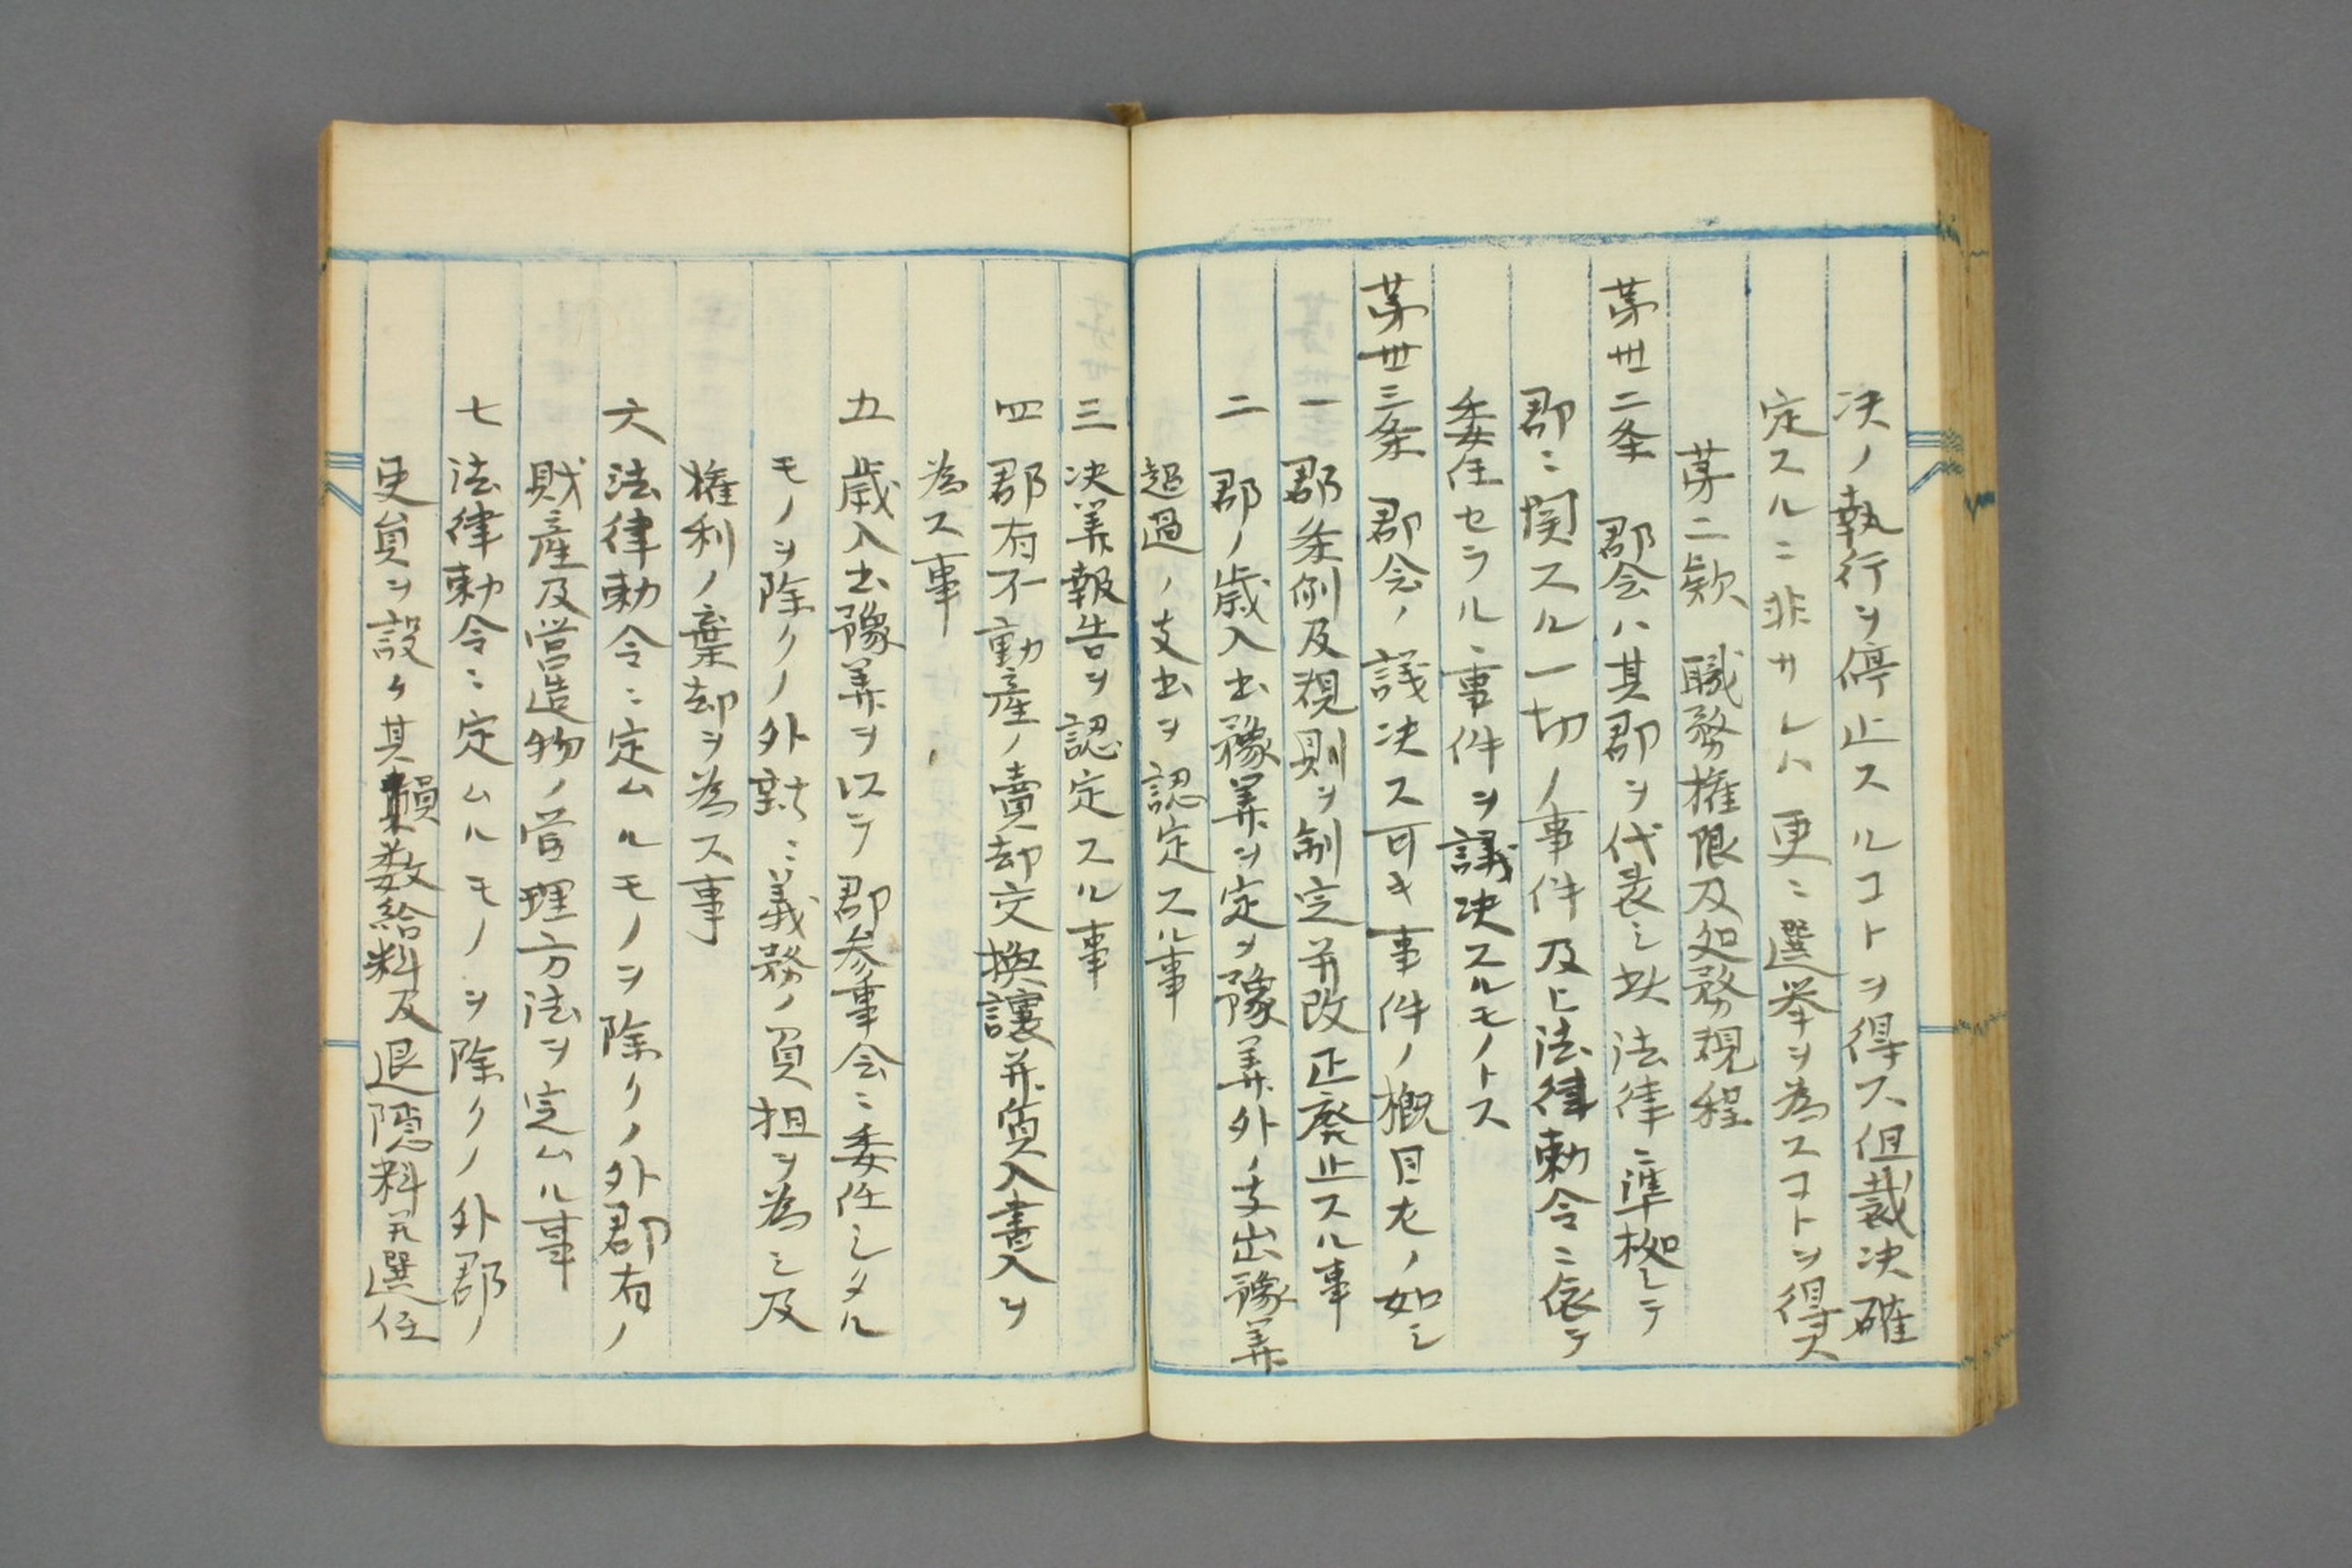 決ノ執行ヲ停止スルコトヲ得ス但裁決確
定スルニ非サレハ更ニ選挙ヲ為スコトヲ得ス
第二款　職務権限及処務規程
第卅二条　郡会ハ其郡ヲ代表シ此法律ニ準拠シテ
郡ニ関スル一切ノ事件及ヒ法律勅令ニ依テ
委任セラルヽ事件ヲ議決スルモノトス
第卅三条　郡会ノ議決ス可キ事件ノ概目左ノ如シ
一　郡条例及規則ヲ制定并改正廃止スル事
二　郡ノ歳入出豫算ヲ定メ豫算外ノ支出豫算
超過ノ支出ヲ認定スル事
三　決算報告ヲ認定スル事
四　郡有不動産ノ賣却交換讓并質入書入ヲ
為ス事
五　歳入出豫算ヲ以テ郡参事会ニ委任シタル
モノヲ除クノ外新ニ義務ノ負担ヲ為シ及
権利ノ棄却ヲ為ス事
六　法律勅令ニ定ムルモノヲ除クノ外郡有ノ
財産及営造物ノ管理方法ヲ定ムル事
七　法律勅令ニ定ムルモノヲ除クノ外郡ノ
吏員ヲ設ケ其員数給料及退隠料并選任